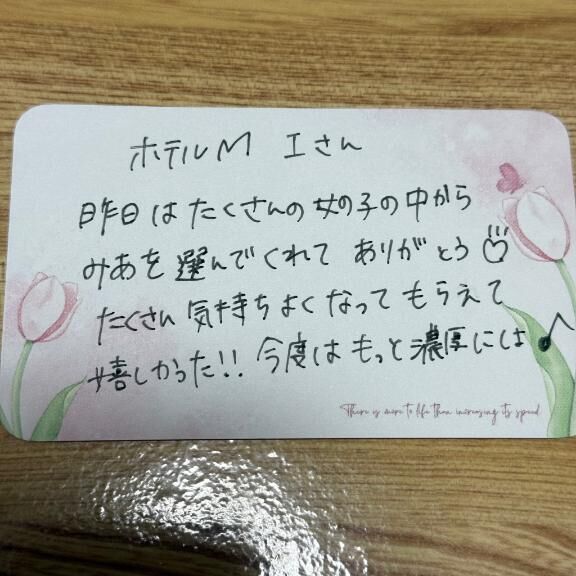 ホテルM Iさん
昨日はたくさんの女の子の中から
みあを選んでくれて ありがとう
たくさん気持ちよくなってもらえて
嬉しかった!! 今度はもっと濃厚にしよ♪
There is more to life than increasing its speed.